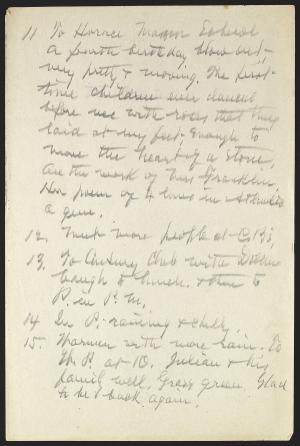 11 To Horace Mann School
a fourth birthday blow out -
very pretty & moving. The first
time children ever danced
before me with roses that they
laid at my feet. Enough to
move the heart of a stone.
Are the work of Miss Franklin.
Her poem of 4 lines in
a gem.
12. Meet more people at C. B's,
13. To Century Club with
to lunch. & then to
P. in P.M.
14 In P. - raining & chilly.
15. Warmer with more rain. To
W. P. at 10. Julian & his
family well. Grass green Glad
to be back again.